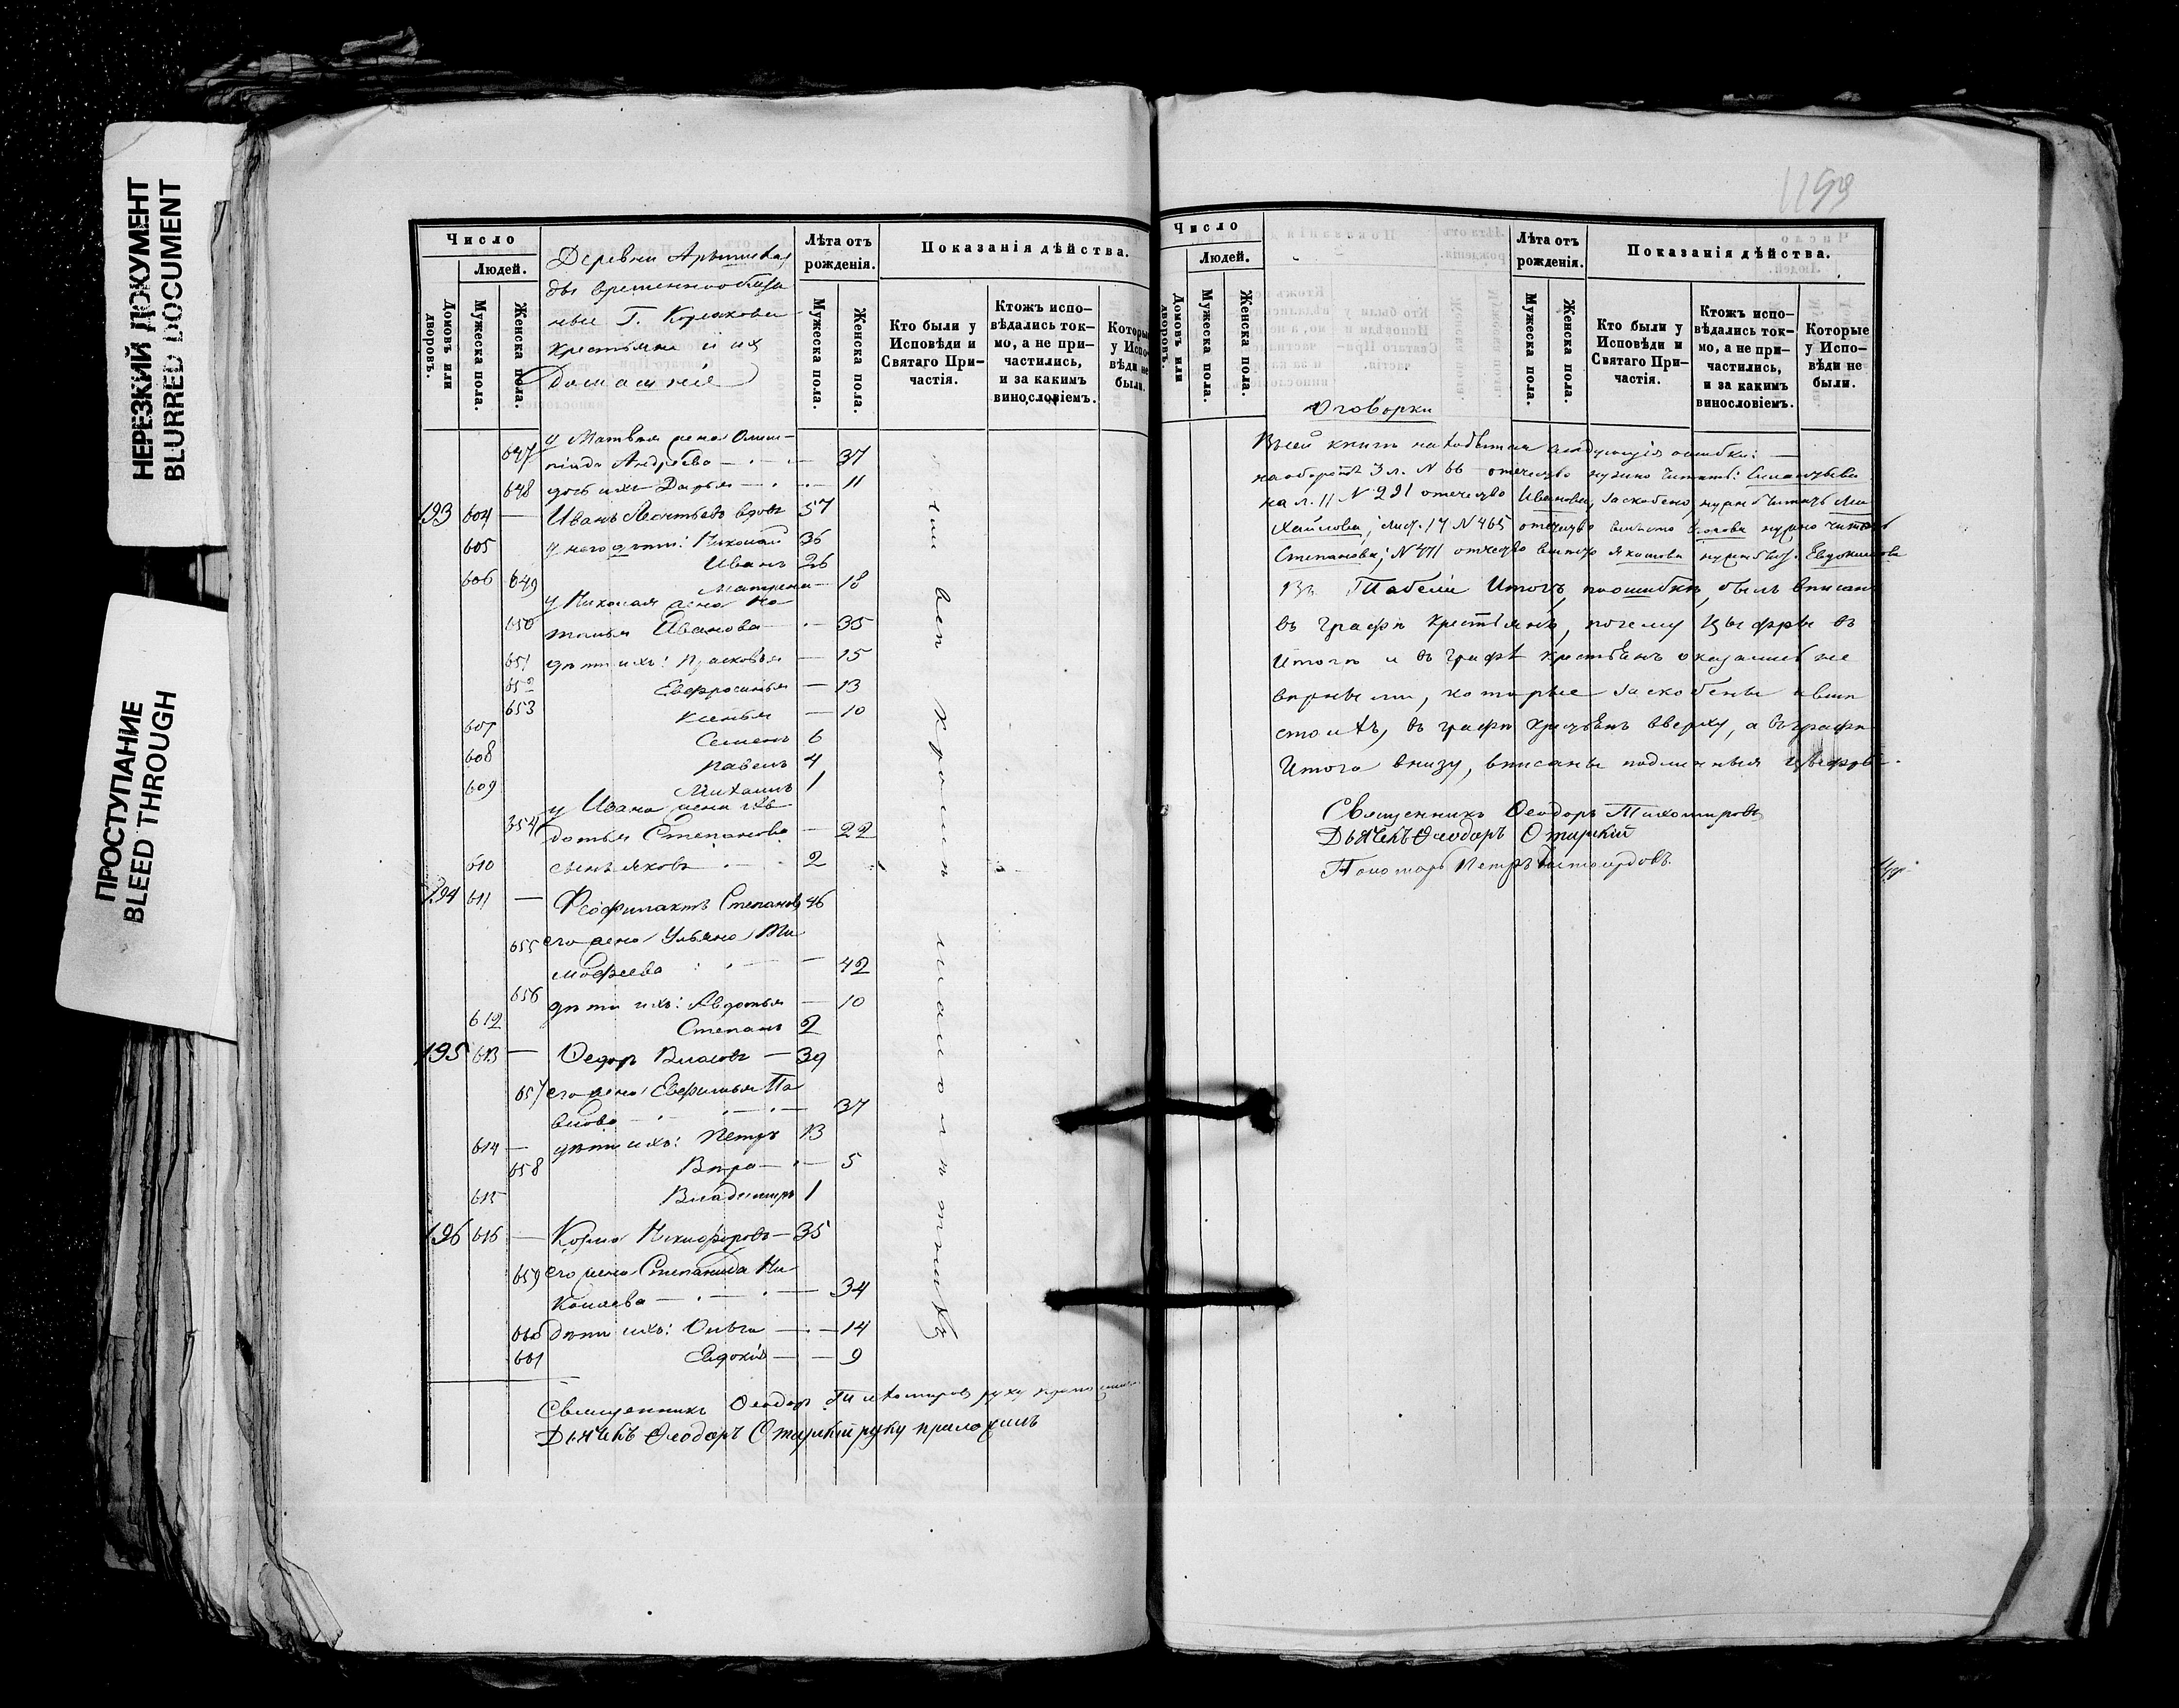 НЕРЕЗКИЙ ДОКУМЕНТ
BLURRED DOCUMENT
ПРОСТУПАНИЕ
BLEED THROUGH
Число
Домовъ или дворовъ.
Людей.
Мужеска пола.
Женска пола.
Деревни
временнообяза
ные Г.
Крестьяне и их
Домашніе
Лѣта отъ рожденія.
Мужеска пола.
Женска пола.
Показанія дѣйства.
Кто были у Исповѣди и Святаго Причастія.
Ктожъ исповѣдались токмо, а не причастились, и за какимъ винословіемъ.
Которые у Исповѣди не были.
647 у Матвѣя жена Олим-
піада Андреева — 37
648 дочь ихъ Дарья — 11
193 604 — Иванъ Леонтьевъ вдовъ 57
605 у него дѣти: Николай 36
606 Иванъ 26
649 Матрена — 18
у Николая жена На-
650 талья Иванова — 35
651 дѣти ихъ: Прасковья — 15
652 Евфросинья — 13
653 Ксенья — 10
607 Семенъ 6
608 Павелъ 4
609 Михаилъ 1
у Ивана жена Ав-
354 дотья Степанова — 22
610 сынъ Яковъ 2
194 611 — Феофилактъ Степановъ 46
655 его жена Ульяна Ти
мофеева — 42
656 дѣти ихъ: Авдотья — 10
612 Степанъ 2
195 613 — Ѳедоръ Власовъ — 39
657 его жена Евфимья Па
влова — 37
614 — дѣти ихъ: Петръ 13
658 Вѣра — 5
615 Владимиръ 1
196 616 — Козма Никифоровъ — 35
659 его жена Степанида Ни
колаева — 34
660 дѣти ихъ: Ольга — 14
661 Евдокія — 9
всѣ кромѣ малолѣтнихъ
Священникъ Ѳеодоръ Тихомировъ руку приложилъ
Дьячекъ Ѳеодоръ руку приложилъ
1159
Число
Домовъ или дворовъ.
Людей.
Мужеска пола.
Женска пола.
Лѣта отъ рожденія.
Мужеска пола.
Женска пола.
Показанія дѣйства.
Кто были у Исповѣди и Святаго Причастія.
Ктожъ исповѣдались токмо, а не причастились, и за какимъ винословіемъ.
Которые у Исповѣди не были.
Оговорки
Въ сей книгѣ находятся слѣдующія ошибки: —
на оборотѣ 3 л. N 66 — отечество нужно читать:
на л. 11 N 291 отечество Иванова, заскоблено, нужно читать Ми
хайлова; лист. 17 N 465 отечество вмѣсто нужно читать
Степанова; N 471 отечество вмѣсто Якимова Евдокимова
Въ Табели Итогъ, по ошибкѣ, былъ вписанъ
въ графѣ крестьянъ, почему цыфры въ
Итогѣ и въ графѣ крестьянъ оказались не
вѣрными, которые заскоблены и вмѣ
сто ихъ, въ графѣ крестьянъ вверху, а въ графѣ
Итога внизу, вписаны подлинныя цыфры.
Священникъ Ѳеодоръ Тихомировъ
Дьячекъ Ѳеодоръ
Пономарь Петръ